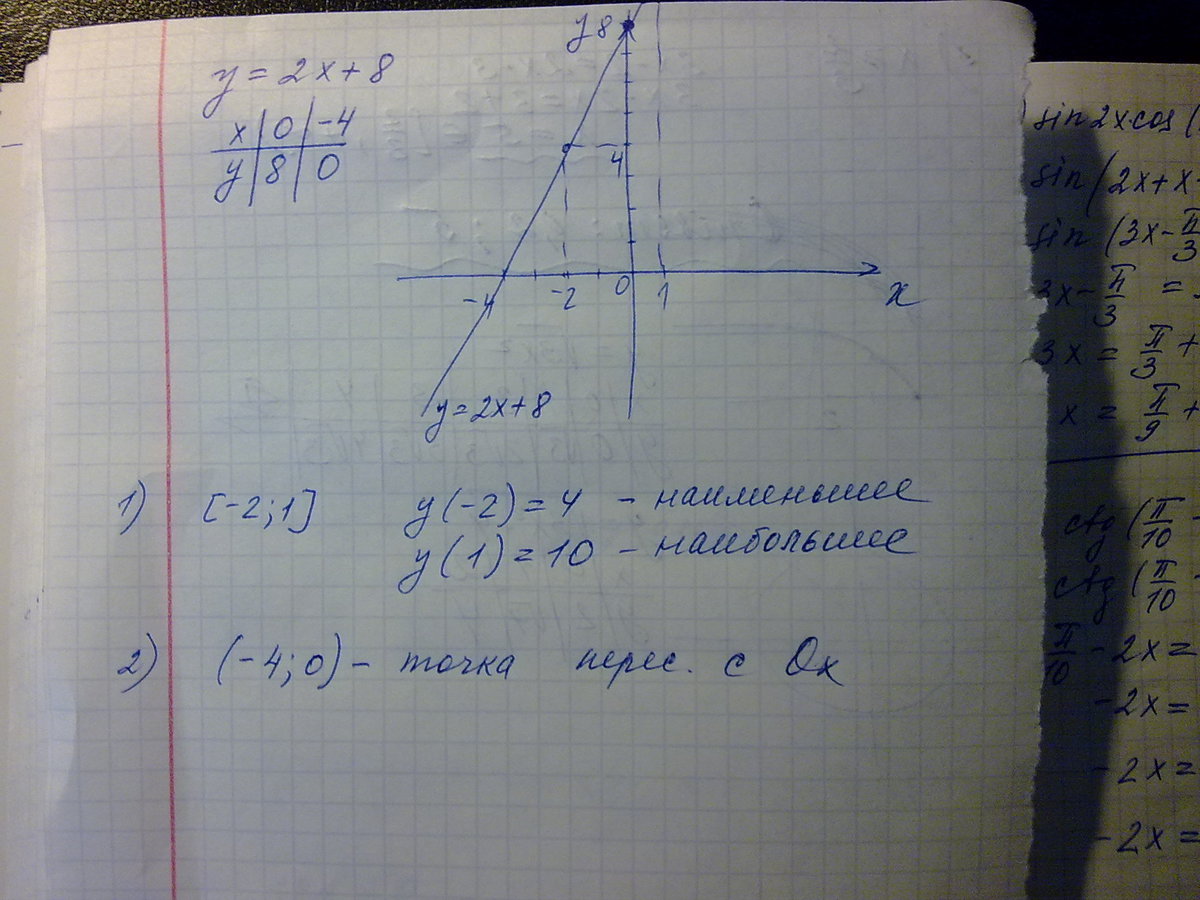 y = 2x + 8
x | 0 | -4
y | 8 | 0
y 8
4
-4 -2 0 1 x
y = 2x + 8
1) [-2; 1] y(-2) = 4 - наименьшее
y(1) = 10 - наибольшее
2) (-4; 0) - точка перес. с Ox
sin 2x cos (
sin (2x + x -
sin (3x - π/3
3x - π/3 =
3x = π/3 +
x = π/9 +
ctg (π/10 -
ctg (π/10 -
π/10 - 2x =
-2x =
-2x =
-2x =